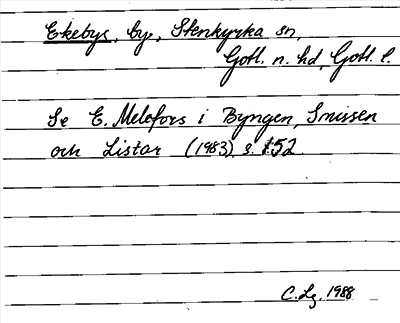 Ekebys, by, Stenkyrka sn,
Gotl. n. hd, Gotl. l.
Se E. Melefors i Byngen, Smissen
och Listar (1983) s. 152.
C. Lg. 1988